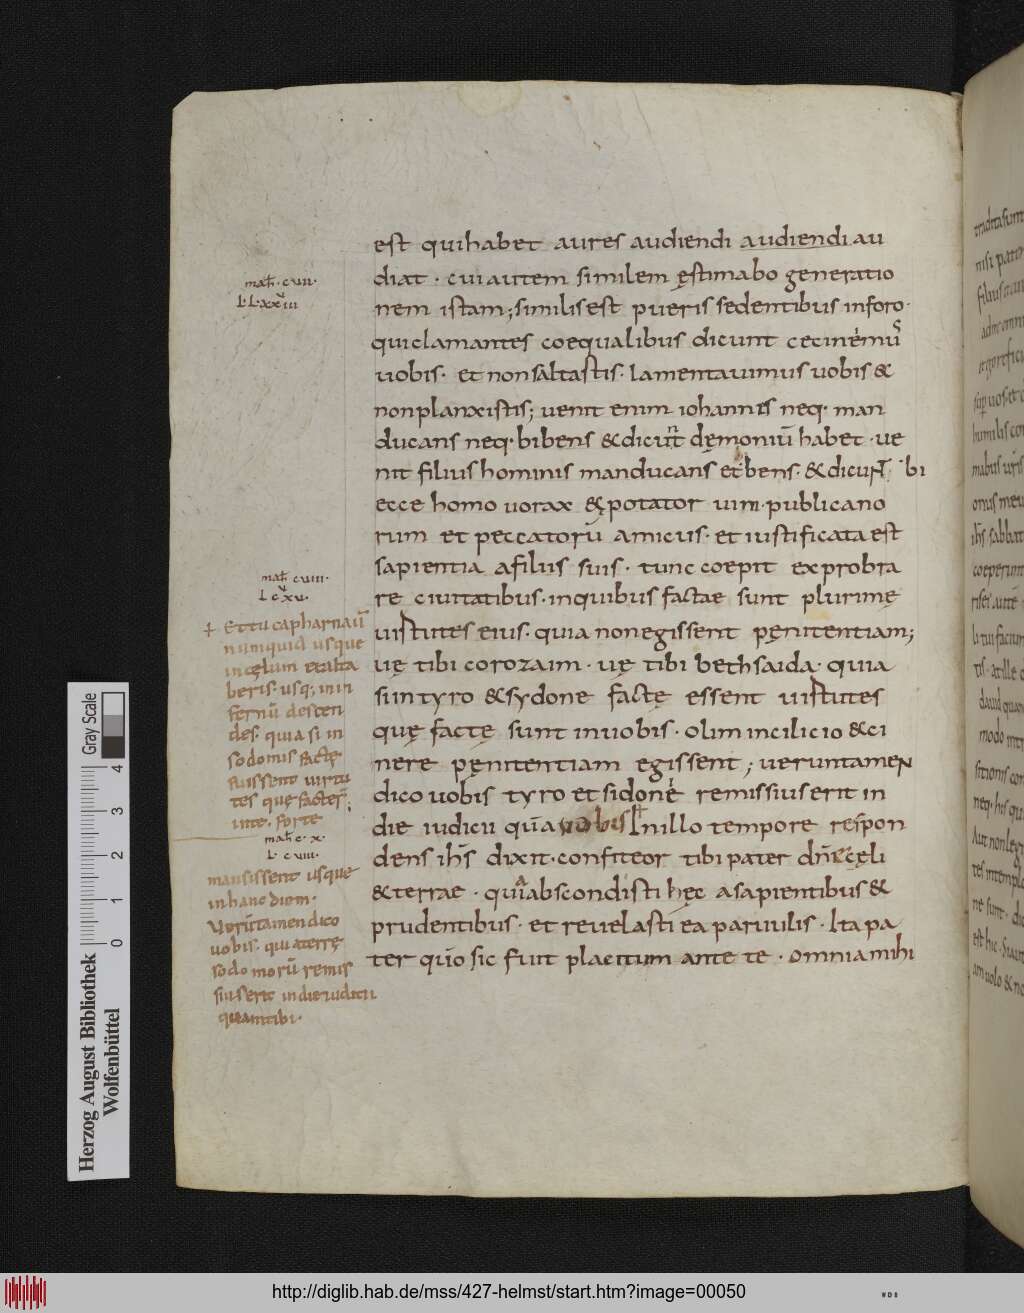 est qui habet aures audiendi audiendi au
diat · cui autem similem ęstimabo generatio
nem istam; similis est pueris sedentibus in foro·
qui clamantes coequalibus dicunt cecinemus̄
uobis· et non saltastis· lamentauimus uobis &
non planxistis; uenit enim iohannes neq· man
ducans neq· bibens & dicunt̄ dęmoniū habet · ue
nit filius hominis manducans et bens· & dicunt̄ bi
ecce homo uorax & potator uini· publicano
rum et peccatorū amicus· et iustificata est
sapientia a filiis suis · tunc coepit exprobra
re ciuitatibus· in quibus factae sunt plurimę
uirtutes eius· quia non egissent pęnitentiam;
uę tibi corozaim · uę tibi bethsaida· quia
si in tyro & sydone factę essent uirtutes
quę factę sunt in uobis · olim in cilicio & ci
nere pęnitentiam egissent; ueruntamen
dico uobis tyro et sidone remissius erit in
die iudicii quā uobis In illo tempore respon
dens ih̄s dixit· confiteor tibi pater dn̄e cęli
& terrae · quia abscondisti hęc a sapientibus &
prudentibus · et reuelasti ea paruulis · Ita pa
ter qūo sic fuit placitum ante te · omnia mihi
mat̄· c vii·
L L·xxiii
mat̄ c viii·
L c xv·
+ Et tu capharnaū
numquid usque
in cęlum exalta
beris· usq; in in
fernū descen
des· quia si in
sodomis factę
fuissent uirtu
tes quę factę s̄;
in te · forte
mat̄ c · x·
L · c viii·
mansissent usque
in hanc diem·
Uerūtamen dico
uobis· quia terrę
sodomorū remis
sius erit in die iudicii
quam tibi·
Herzog August Bibliothek
Wolfenbüttel
0 1 2 3 4
Gray Scale
http://diglib.hab.de/mss/427-helmst/start.htm?image=00050